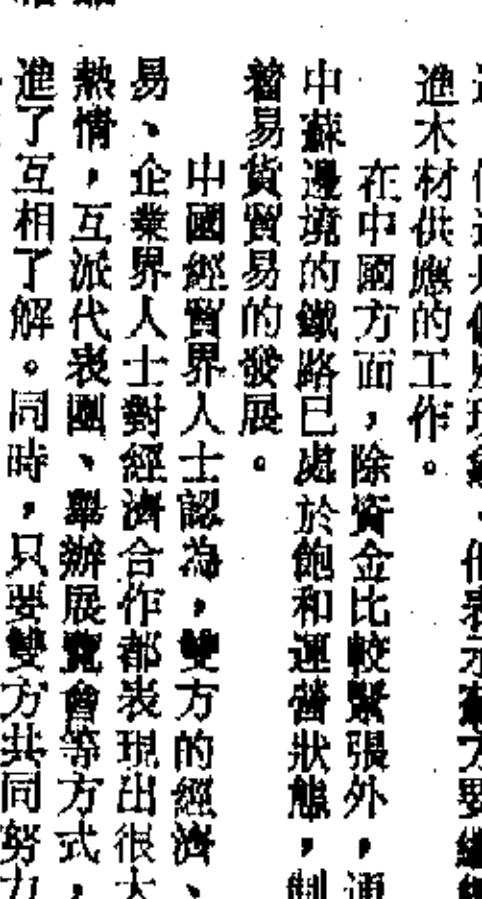 表示蘇方要繼
進木材供應的工作。
在中國方面，除資金比較緊張外，通
中蘇邊境的鐵路已處於飽和運營狀態，制
著易貨貿易的發展。
中國經貿界人士認為，雙方的經濟、
易、企業界人士對經濟合作都表現出很大
熱情，互派代表團、舉辦展覽會等方式，
進了互相了解。同時，只要雙方共同努力